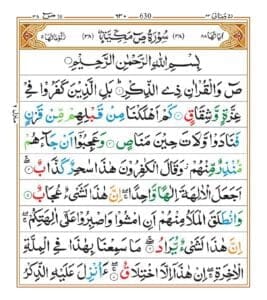 630
سُوْرَةُ صٓ مَكِّيَّةٌ
بِسْمِ اللّٰهِ الرَّحْمٰنِ الرَّحِيْمِ
صٓ وَالْقُرْاٰنِ ذِى الذِّكْرِ بَلِ الَّذِيْنَ كَفَرُوْا فِىْ
عِزَّةٍ وَّشِقَاقٍ كَمْ اَهْلَكْنَا مِنْ قَبْلِهِمْ مِّنْ قَرْنٍ
فَنَادَوْا وَّلَاتَ حِيْنَ مَنَاصٍ وَعَجِبُوْۤا اَنْ جَآءَهُمْ
مُّنْذِرٌ مِّنْهُمْ وَقَالَ الْكٰفِرُوْنَ هٰذَا سٰحِرٌ كَذَّابٌ
اَجَعَلَ الْاٰلِهَةَ اِلٰهًا وَّاحِدًا اِنَّ هٰذَا لَشَىْءٌ عُجَابٌ
وَانْطَلَقَ الْمَلَاُ مِنْهُمْ اَنِ امْشُوْا وَاصْبِرُوْا عَلٰٓى اٰلِهَتِكُمْ
اِنَّ هٰذَا لَشَىْءٌ يُّرَادُ مَا سَمِعْنَا بِهٰذَا فِى الْمِلَّةِ
الْاٰخِرَةِ اِنْ هٰذَاۤ اِلَّا اخْتِلَاقٌ ءَاُنْزِلَ عَلَيْهِ الذِّكْرُ